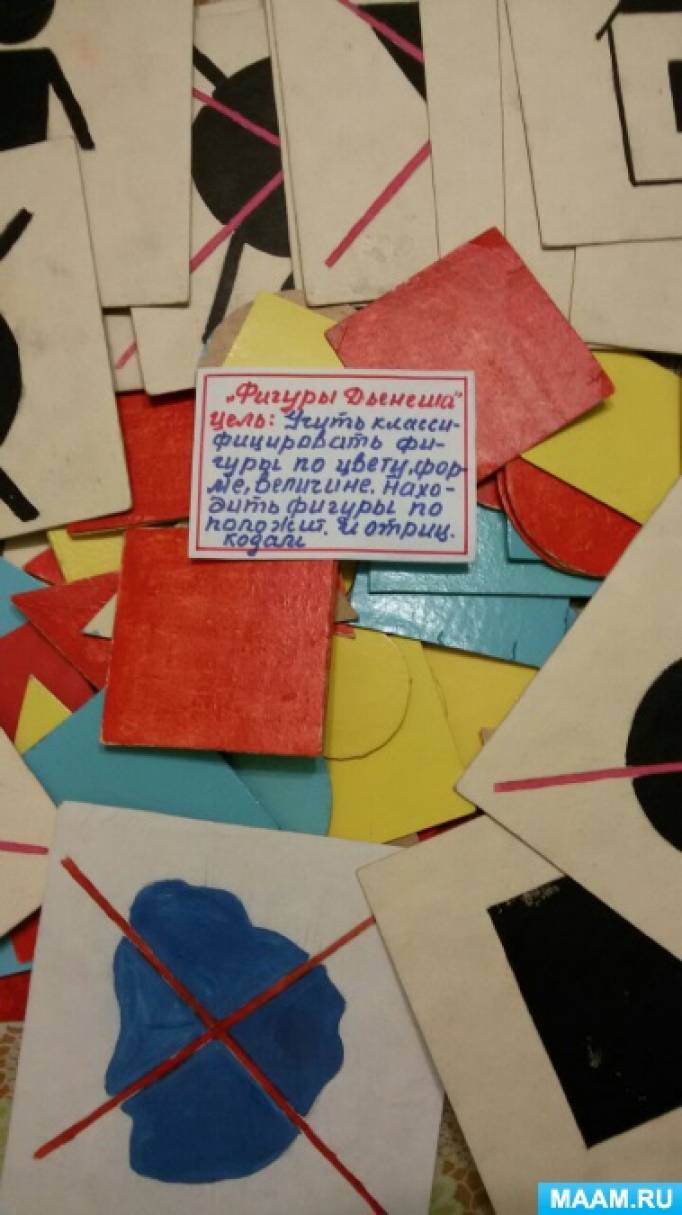 „Фигуры Дьенеша"
Цель: Учить класси-
фицировать фи-
гуры по цвету, фор-
ме, величине. Нахо-
дить фигуры по
положит. и отриц.
кодам
MAAM.RU